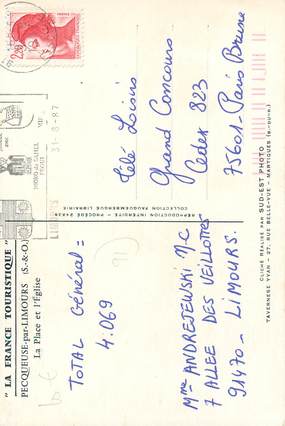 " LA FRANCE TOURISTIQUE "
PECQUEUSE-par-LIMOURS (S.-&-O.)
La Place et l'Église
TOTAL Général =
4.069
Mme ANDREJEWSKI M-C
7 ALLEE DES VEILLOTTES
91470 - LIMOURS.
REPRODUCTION INTERDITE - PROCÉDÉ
COLLECTION FAUQUEMBERGUE LIBRAIRIE
LIMOURS
31-8-87
2,20
Télé Loisirs
Grand Concours
Cedex 823
75601 - Paris Brune
CLICHÉ RÉALISÉ PAR SUD-EST PHOTO
TAVERNESE YVAN - 27, RUE BELLE-VUE - MARTIGUES (B.-du-R.)